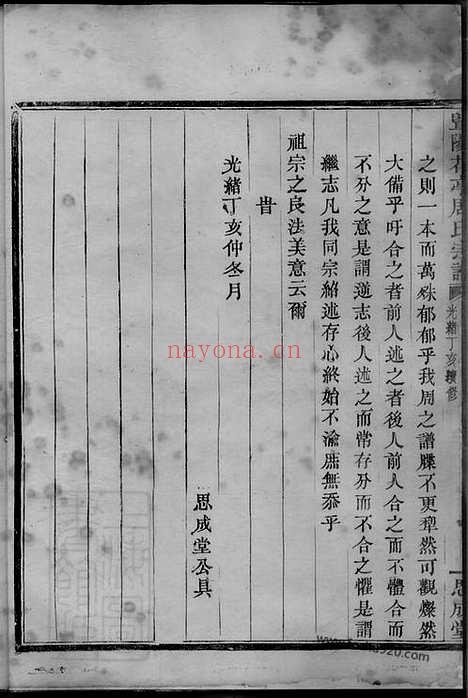 暨陽花亭周氏宗譜 光緒丁亥續修 思成堂
之則一本而萬殊郁郁乎我周之譜牒不更犂然可觀燦然
大備乎吁合之者前人述之者後人前人合之而不體合而
不分之意是謂逆志後人述之而常存分而不合之懼是謂
繼志凡我同宗紹述存心終始不渝庶無忝乎
祖宗之良法美意云爾
旹
光緒丁亥仲冬月
思成堂公具
nayona.cn